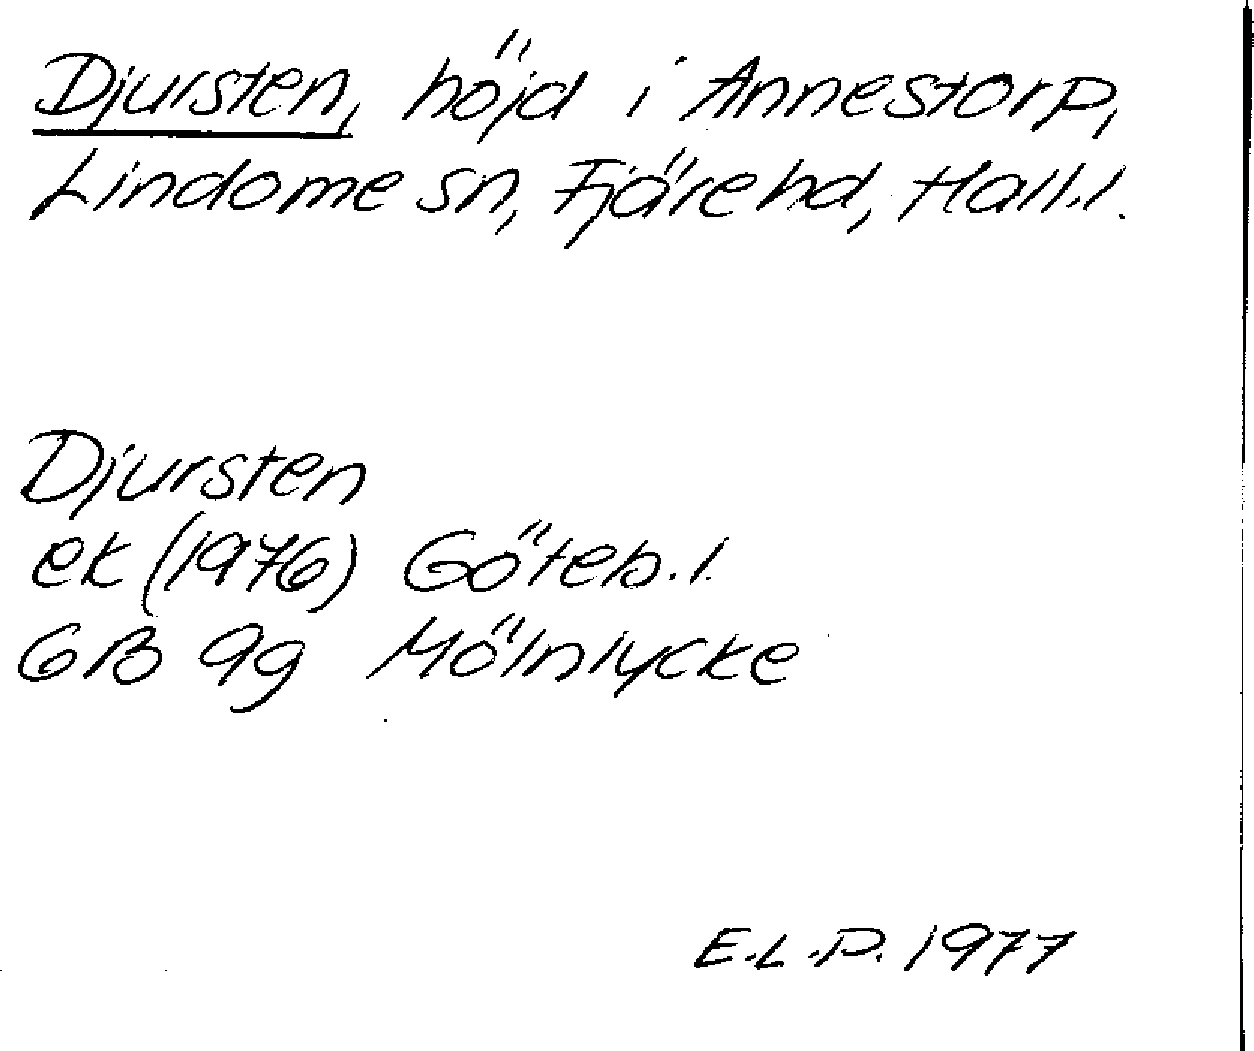 Djursten, höjd i Annestorp,
Lindome sn, Fjäre hd, Hall.l.
Djursten
ek (1976) Göteb.l.
GB 9g Mölnlycke
E.L.P. 1977